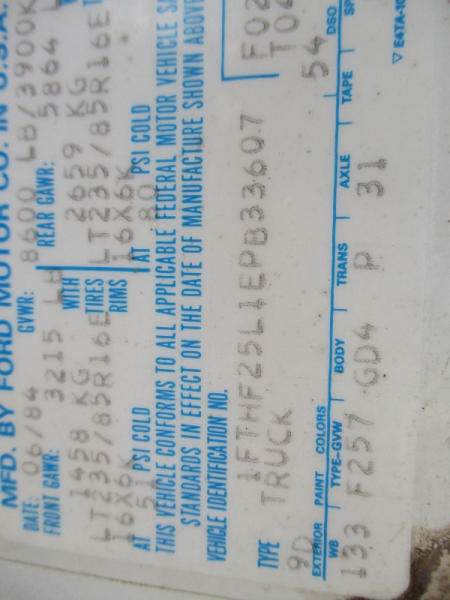 MFD. BY FORD MOTOR CO. IN U.S.A.
DATE: 06/84 GVWR: 8600 LB/3900K
FRONT GAWR: 3215 LB REAR GAWR: 5864 L
1458 KG WITH 2659 KG
LT235/85R16E TIRES LT235/85R16E
16X6K RIMS 16X6K
AT 51 PSI COLD AT 80 PSI COLD
THIS VEHICLE CONFORMS TO ALL APPLICABLE FEDERAL MOTOR VEHICLE SA
STANDARDS IN EFFECT ON THE DATE OF MANUFACTURE SHOWN ABOVE
VEHICLE IDENTIFICATION NO.
1FTHF25L1EPB33607
TYPE TRUCK
F02
T04
9D 54
EXTERIOR PAINT COLORS DSO
WB TYPE-GVW BODY TRANS AXLE TAPE SP
133 F257 GD4 P 31
▽ E4TA-10